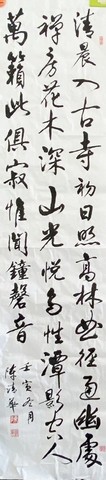 清晨入古寺初日照高林曲径通幽處
禅房花木深山光悦鳥性潭影空人
萬籟此俱寂惟聞鐘磬音
壬寅冬月